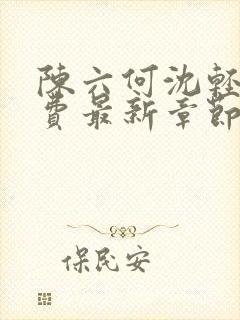 陳六何沈輕
費最新章節
保民安